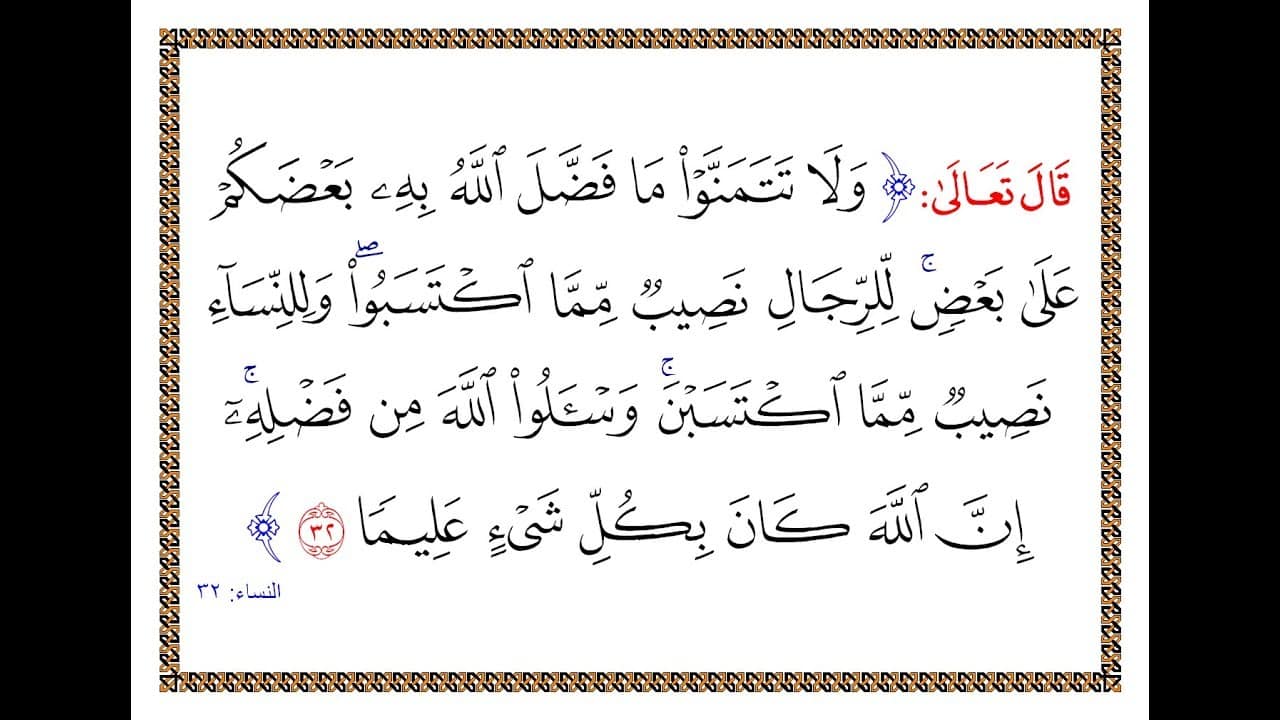 قَالَ تَعَالَىٰ: ﴿ وَلَا تَتَمَنَّوۡاْ مَا فَضَّلَ ٱللَّهُ بِهِۦ بَعۡضَكُمۡ
عَلَىٰ بَعۡضٖۚ لِّلرِّجَالِ نَصِيبٞ مِّمَّا ٱكۡتَسَبُواْۖ وَلِلنِّسَآءِ
نَصِيبٞ مِّمَّا ٱكۡتَسَبۡنَۚ وَسۡـَٔلُواْ ٱللَّهَ مِن فَضۡلِهِۦٓۚ
إِنَّ ٱللَّهَ كَانَ بِكُلِّ شَيۡءٍ عَلِيمٗا ٣٢ ﴾
النساء: ٣٢